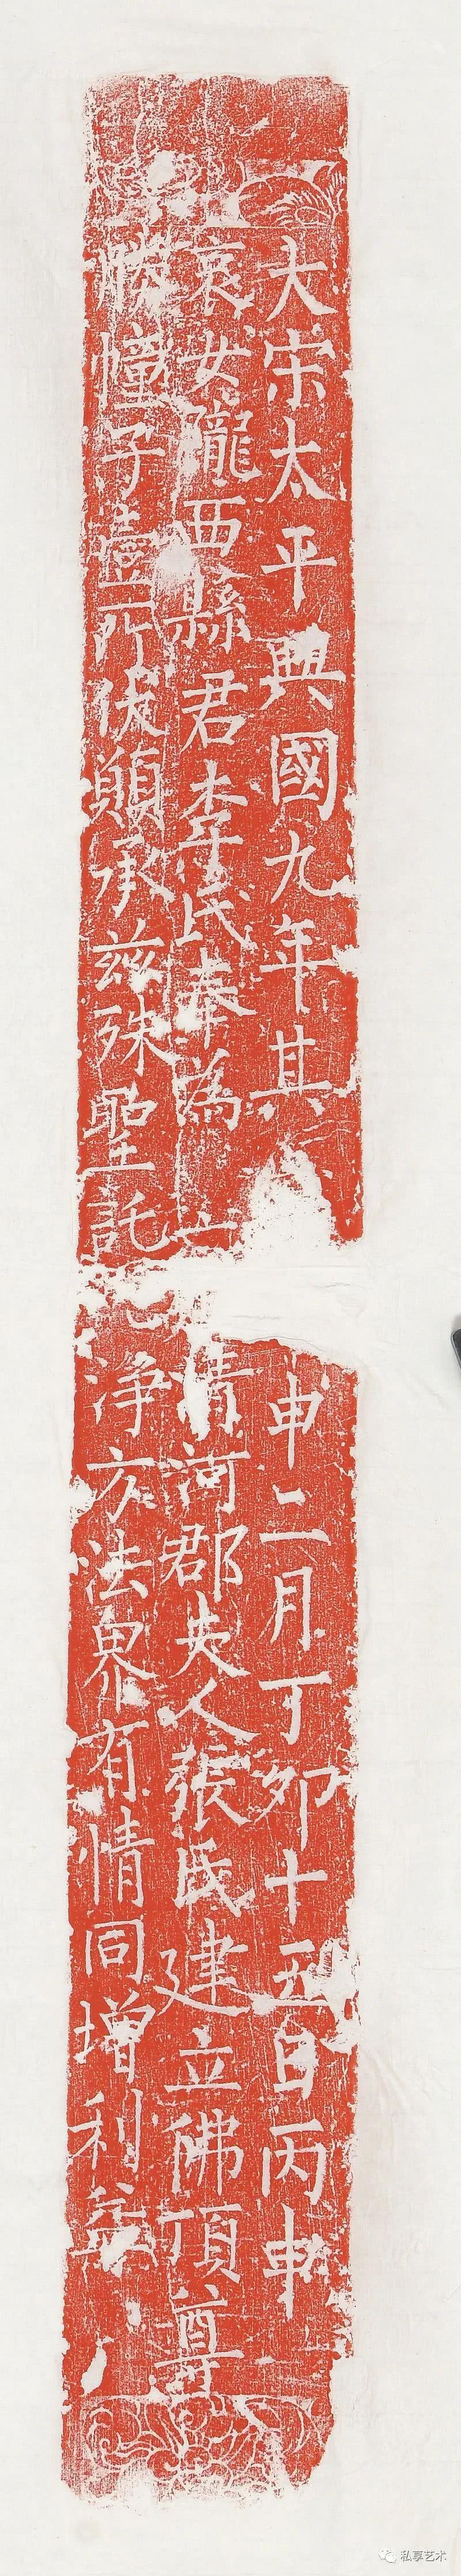 大宋太平興國九年其申二月丁卯十五日丙申
哀女隴西縣君李氏奉為清河郡夫人張氏建立佛頂尊
勝幢子壹所伏願承茲殊聖託浄方法界有情同增利益
私享艺术